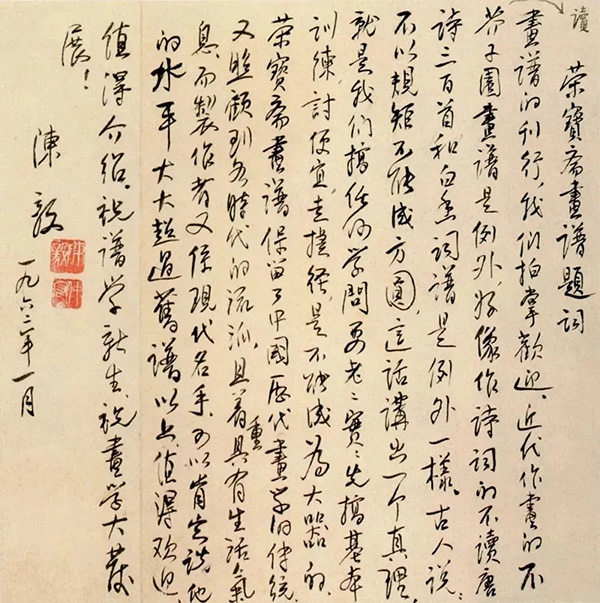 讀
荣寶斋畫譜題詞
畫譜的刊行，我们拍掌歡迎。近代作畫的不
芥子園畫譜是例外，好像作詩詞的不讀唐
詩三百首和白香詞譜是例外一樣。古人說：
不以規矩不能成方圓，這話講出一个真理，
就是我们搞任何学問要老々實々先搞基本
訓練，討便宜，走捷徑，是不能成为大器的。
荣寶斋畫譜保留了中國歷代畫学的传統，
又照顧到各時代的流派，且着重具有生活氣
息，而製作者又係現代名手，可以肯定說他
的水平大大超過舊譜。以上值得欢迎，
值得介绍。祝譜学新生，祝畫学大发
展！
陳毅
一九六二年一月